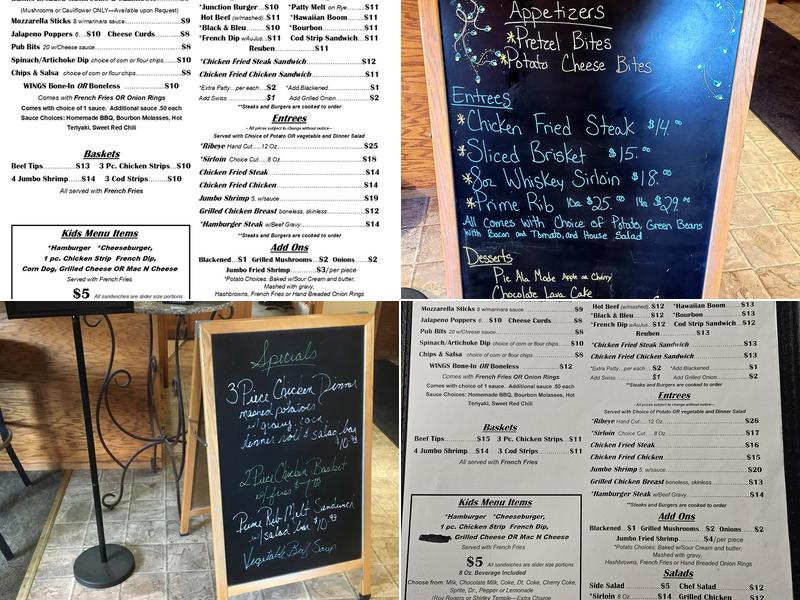 (Mushrooms or Cauliflower ONLY—Available upon Request)
Mozzarella Sticks 8 w/marinara sauce $9
Jalapeno Poppers 6 $10 Cheese Curds $8
Pub Bits 20 w/Cheese sauce $8
Spinach/Artichoke Dip choice of corn or flour chips $10
Chips & Salsa choice of corn or flour chips $8
WINGS Bone-In OR Boneless $10
Comes with French Fries OR Onion Rings
Comes with choice of 1 sauce. Additional sauce .50 each
Sauce Choices: Homemade BBQ, Bourbon Molasses, Hot
Teriyaki, Sweet Red Chili
Baskets
Beef Tips $13 3 Pc. Chicken Strips $10
4 Jumbo Shrimp $14 3 Cod Strips $10
All served with French Fries
Kids Menu Items
*Hamburger *Cheeseburger,
1 pc. Chicken Strip French Dip,
Corn Dog, Grilled Cheese OR Mac N Cheese
Served with French Fries
$5 All sandwiches are slider size portions
*Junction Burger $10 *Patty Melt on Rye $11
Hot Beef (w/mashed) $11 *Hawaiian Boom $11
*Black & Bleu $10 *Bourbon $11
*French Dip w/AuJus $11 Cod Strip Sandwich $11
Reuben $11
*Chicken Fried Steak Sandwich $12
Chicken Fried Chicken Sandwich $11
*Extra Patty...per each $2 *Add Blackened $1
Add Swiss $1 Add Grilled Onion $2
*Steaks and Burgers are cooked to order
Entrees
- All prices subject to change without notice-
Served with Choice of Potato OR vegetable and Dinner Salad
*Ribeye Hand Cut 12 Oz $25
*Sirloin Choice Cut 8 Oz $18
Chicken Fried Steak $14
Chicken Fried Chicken $14
Jumbo Shrimp 5, w/sauce $19
Grilled Chicken Breast boneless, skinless $12
*Hamburger Steak w/Beef Gravy $14
**Steaks and Burgers are cooked to order
Add Ons
Blackened $1 Grilled Mushrooms $2 Onions $2
Jumbo Fried Shrimp $3/per piece
*Potato Choices: Baked w/Sour Cream and butter,
Mashed with gravy,
Hashbrowns, French Fries or Hand Breaded Onion Rings
Appetizers
*Pretzel Bites
*Potato Cheese Bites
Entrees
*Chicken Fried Steak $14.00
*Sliced Brisket $15.00
*8oz Whiskey Sirloin $18.00
*Prime Rib 10oz $25.00 14oz $29.00
All Comes with Choice of Potato, Green Beans
with Bacon and Tomato, and House Salad
Desserts
Pie Ala Mode Apple or Cherry
Chocolate Lava Cake
Specials
3 Piece Chicken Dinner
mashed potatoes
w/ gravy, corn,
dinner roll & salad bar
$10.99
2 Piece Chicken Basket
w/ fries
Prime Rib Melt Sandwich
w/ salad bar $10.99
Vegetable Beef Soup
Mozzarella Sticks 8 w/marinara sauce $9
Jalapeno Poppers 6 $10 Cheese Curds $8
Pub Bits 20 w/Cheese sauce $8
Spinach/Artichoke Dip choice of corn or flour chips $10
Chips & Salsa choice of corn or flour chips $8
WINGS Bone-In OR Boneless $12
Comes with French Fries OR Onion Rings
Comes with choice of 1 sauce. Additional sauce .50 each
Sauce Choices: Homemade BBQ, Bourbon Molasses, Hot
Teriyaki, Sweet Red Chili
Baskets
Beef Tips $15 3 Pc. Chicken Strips $11
4 Jumbo Shrimp $14 3 Cod Strips $11
All served with French Fries
Kids Menu Items
*Hamburger *Cheeseburger,
1 pc. Chicken Strip French Dip,
Grilled Cheese OR Mac N Cheese
Served with French Fries
$5 All sandwiches are slider size portions
8 Oz. Beverage Included
Choose from: Milk, Chocolate Milk, Coke, Dt. Coke, Cherry Coke,
Sprite, Dr., Pepper or Lemonade
(Roy Rogers or Shirley Temple—Extra Charge
Hot Beef (w/mashed) $12 *Hawaiian Boom $13
*Black & Bleu $12 *Bourbon $13
*French Dip w/AuJus $12 Cod Strip Sandwich $12
Reuben $13
*Chicken Fried Steak Sandwich $13
Chicken Fried Chicken Sandwich $13
*Extra Patty...per each $2 *Add Blackened $1
Add Swiss $1 Add Grilled Onion $2
*Steaks and Burgers are cooked to order
Entrees
- All prices subject to change without notice-
Served with Choice of Potato OR vegetable and Dinner Salad
*Ribeye Hand Cut 12 Oz $26
*Sirloin Choice Cut 8 Oz $17
Chicken Fried Steak $16
Chicken Fried Chicken $15
Jumbo Shrimp 5, w/sauce $20
Grilled Chicken Breast boneless, skinless $13
*Hamburger Steak w/Beef Gravy $14
**Steaks and Burgers are cooked to order
Add Ons
Blackened $1 Grilled Mushrooms $2 Onions $2
Jumbo Fried Shrimp $4/per piece
*Potato Choices: Baked w/Sour Cream and butter,
Mashed with gravy,
Hashbrowns, French Fries or Hand Breaded Onion Rings
Salads
Side Salad $5 Chef Salad $12
*Sirloin 8 Oz $14 Grilled Chicken $12